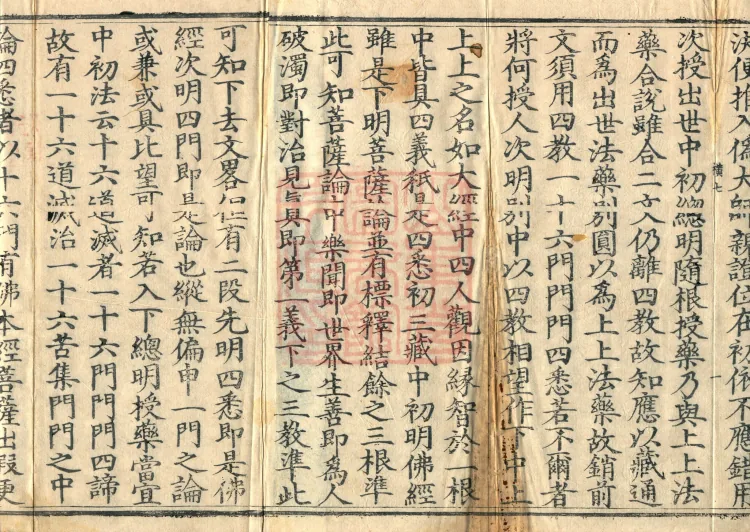 次授出世中初總明隨根授藥乃與上上法
藥合說雖合二文仍離四教故知應以藏通
而為出世法藥別圓以為上上法藥故銷前
文須用四教一十六門門門四悉若不爾者
將何授人次明別中以四教相望作下中上
上上之名如大經中四人觀因緣智於一根
中皆具四義秖是四悉初三藏中初明佛經
雖是下明菩薩論並有標釋結餘之三根準
此可知菩薩論中樂聞即世界生善即為人
破濁即對治見真即第一義下之三教準此
可知下去文畧但有二段先明四悉即是佛
經次明四門即是論也縱無偏申一門之論
或兼或具比望可知若入下總明授藥當宜
中初法云十六道滅者一十六門門門四諦
故有一十六道滅治一十六苦集門門之中
論四悉者以十六門有佛本經菩薩出假更